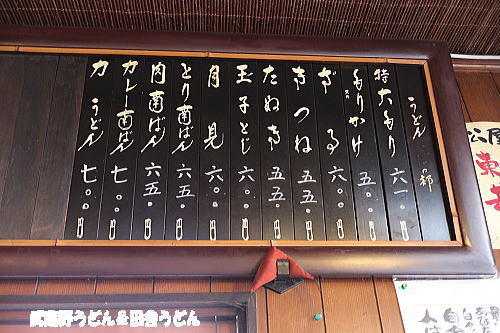 うどん の部
特大もり 六一〇
もりかけ 五〇〇
ざる 六〇〇
きつね 五五〇
たぬき 五五〇
玉子とじ 六〇〇
月見 六〇〇
とり南ばん 六五〇
肉南ばん 六五〇
カレー南ばん 七〇〇
力うどん 七〇〇
武蔵野うどん&田舎うどん